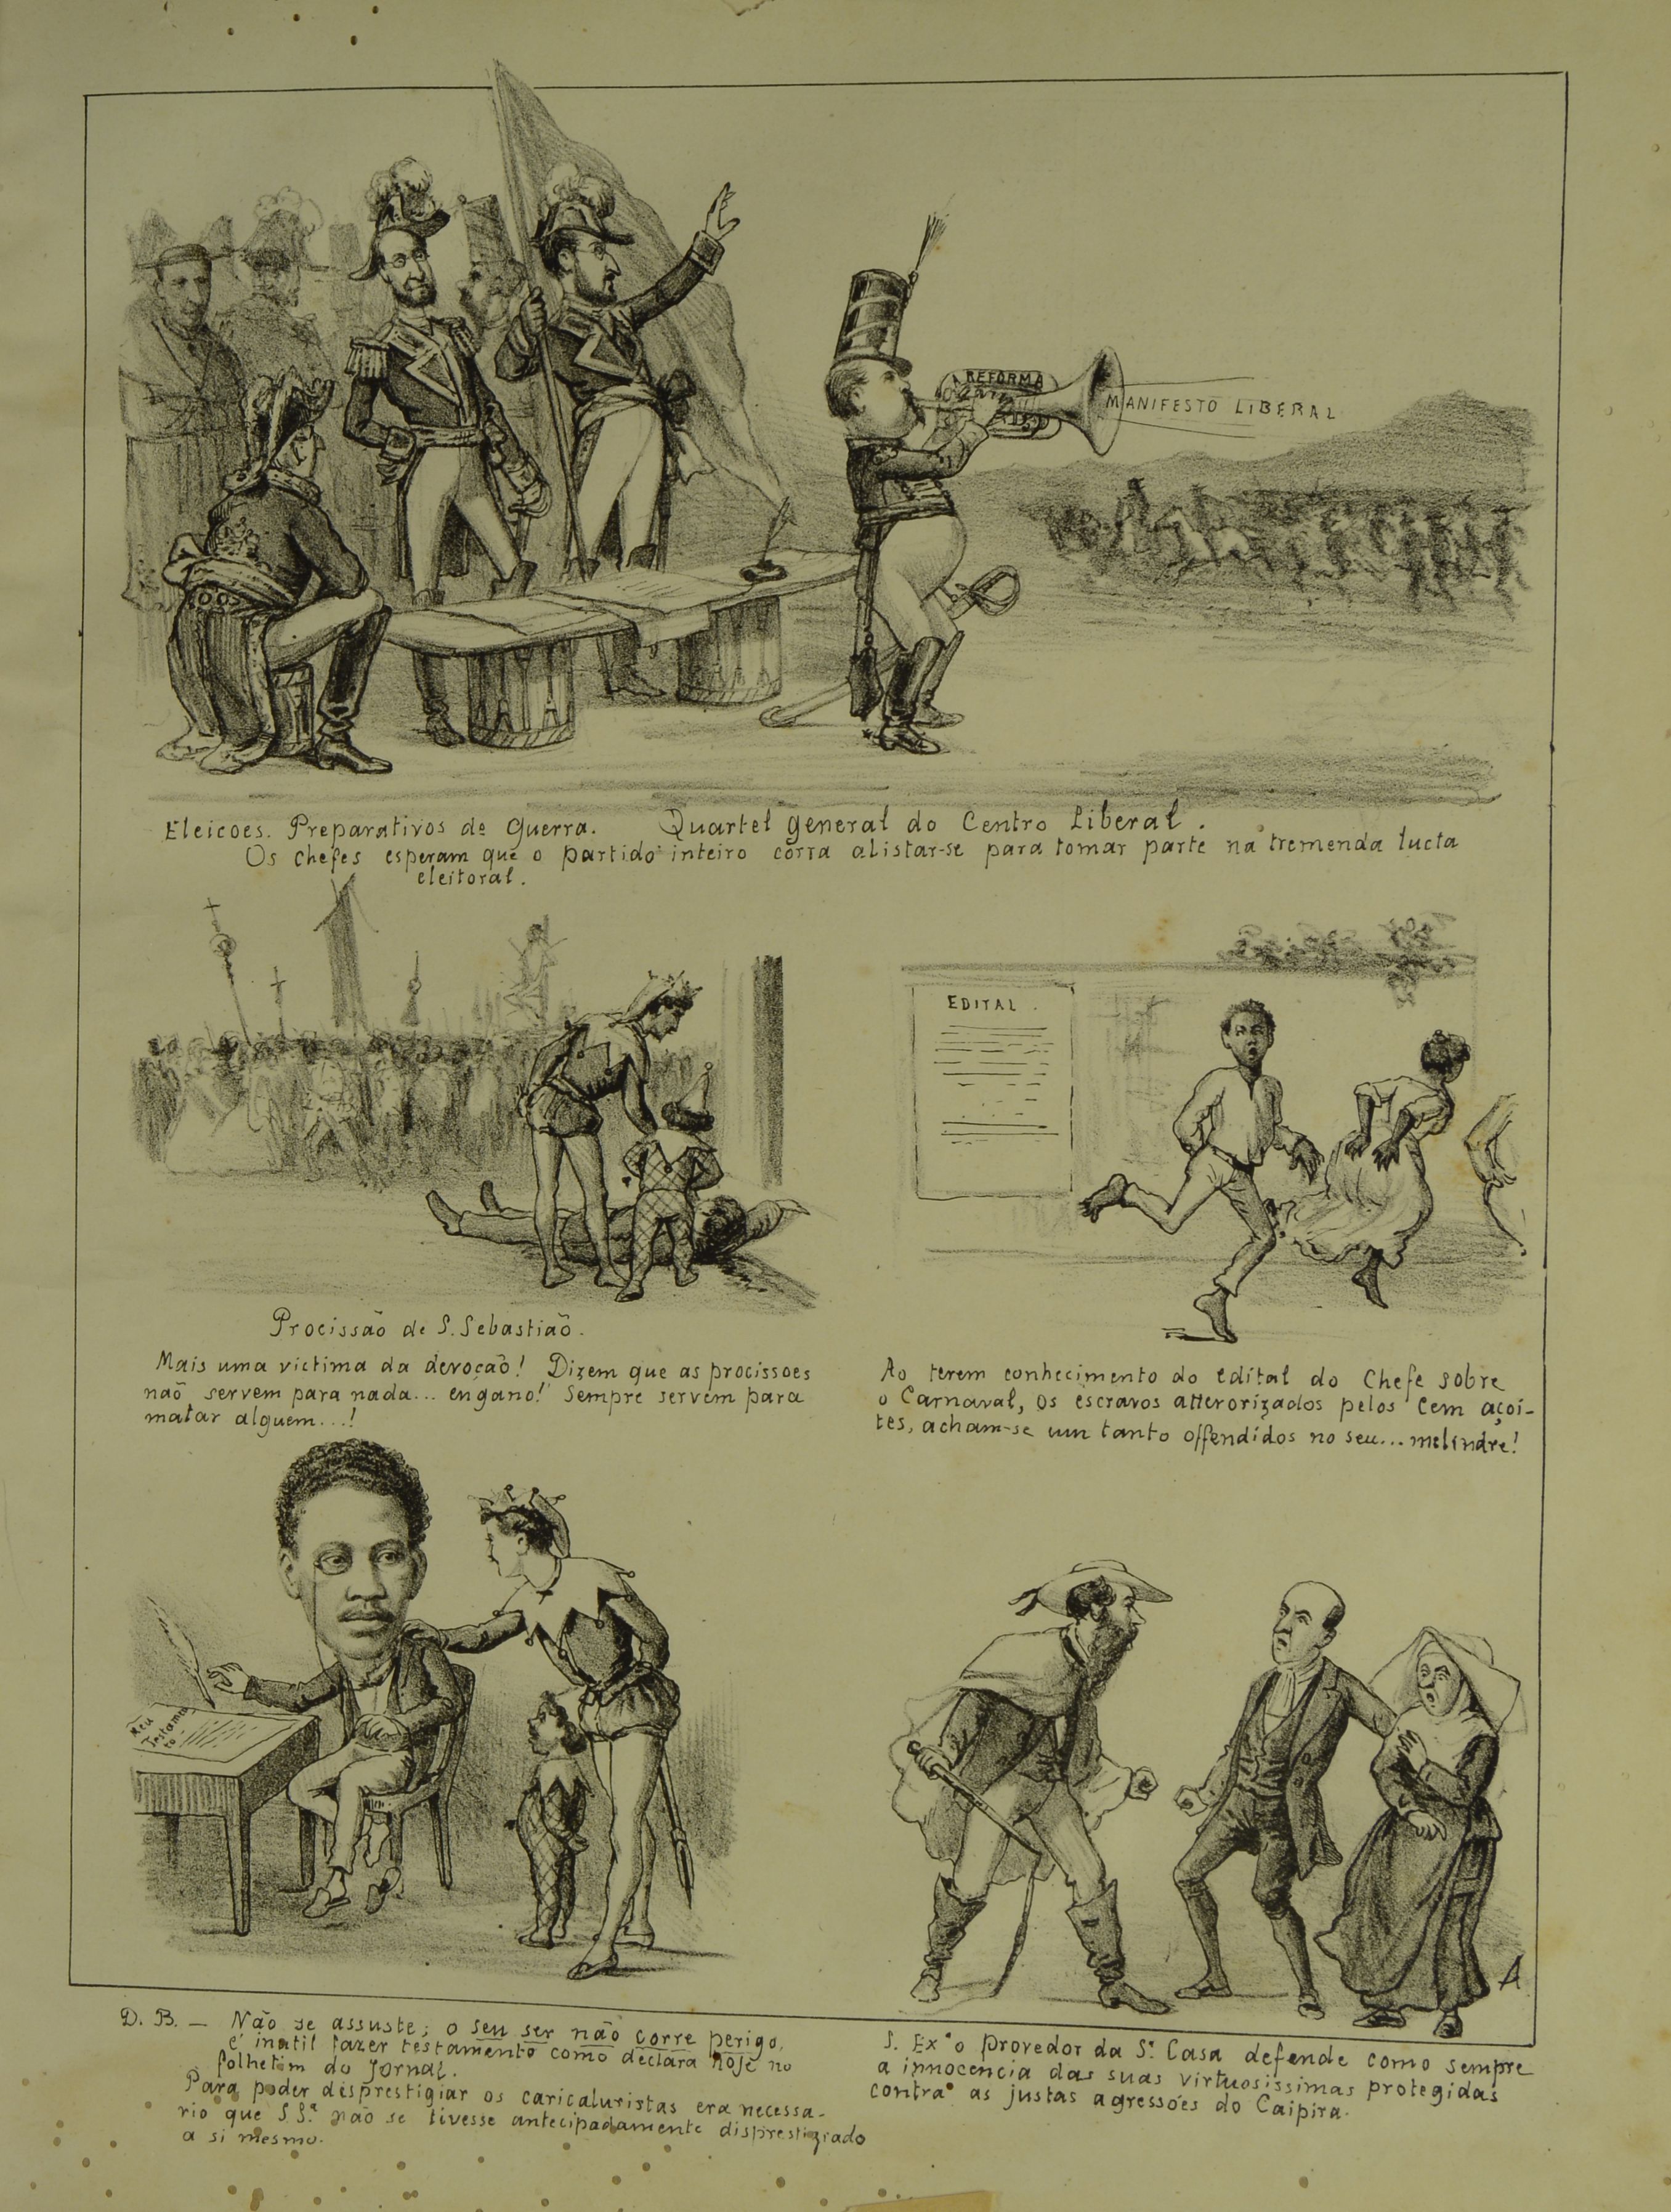 A REFORMA
MANIFESTO LIBERAL
Eleicoes. Preparativos de Guerra. Quartel general do Centro Liberal.
Os chefes esperam que o partido inteiro corra alistar-se para tomar parte na tremenda lucta
eleitoral.
EDITAL.
Procissão de S. Sebastião.
Mais uma victima da devoção! Dizem que as procissoes
não servem para nada... engano! Sempre servem para
matar alguem...!
Ao terem conhecimento do edital do Chefe sobre
o Carnaval, os escravos atterorizados pelos cem açoi-
tes, acham-se um tanto offendidos no seu... melindre!
Meu
Testamen
to
A
D. B. — Não se assuste; o seu ser não corre perigo,
é inutil fazer testamento como declara hoje no
folhetim do Jornal.
Para poder disprestigiar os caricaluristas era necessa-
rio que S Sª não se tivesse antecipadamente disprestigiado
a si mesmo.
S. Exª o Provedor da Sª Casa defende como sempre
a innocencia das suas virtuosissimas protegidas
contra as justas agressões do Caipira.